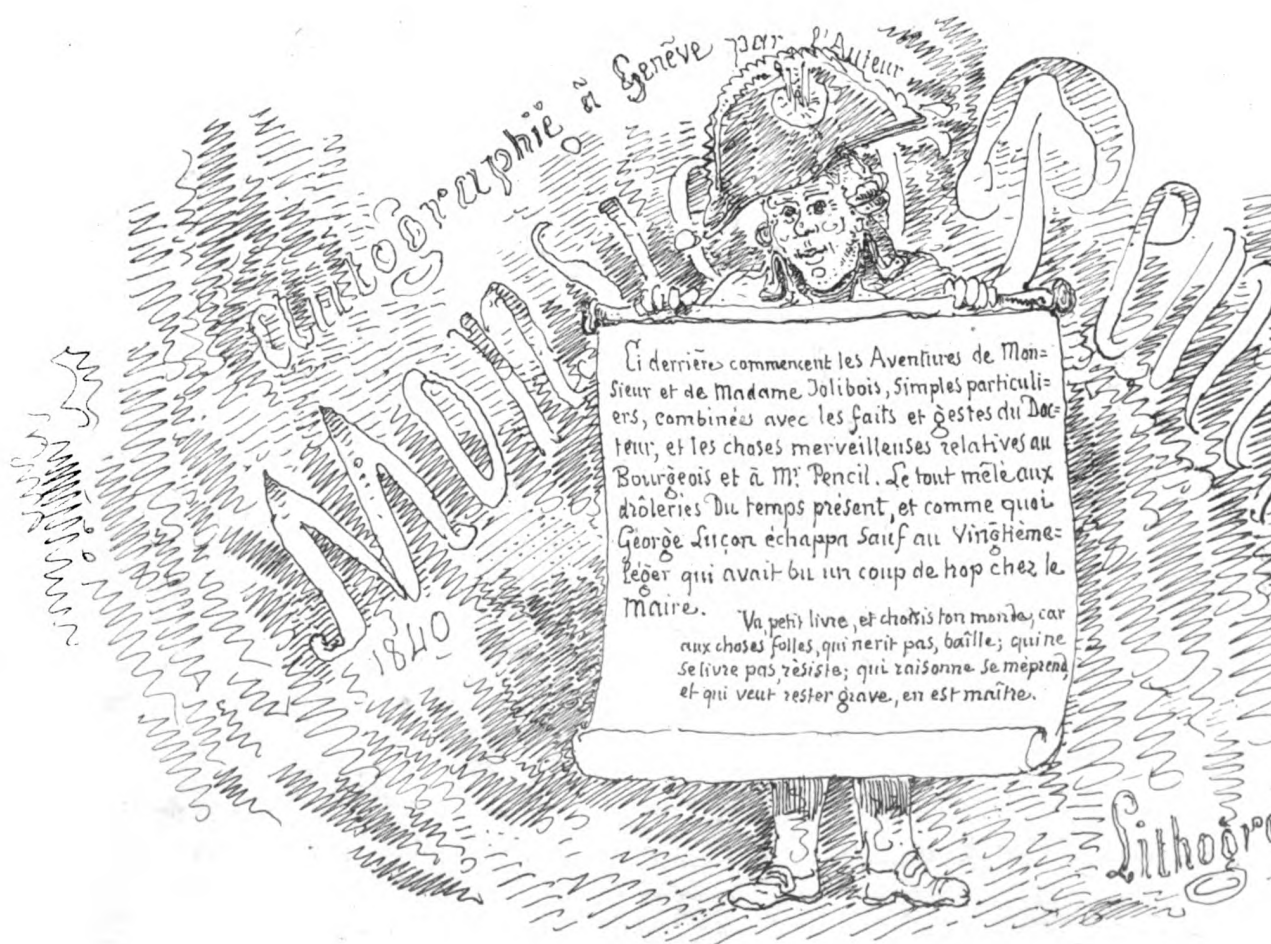 Autographié à Genêve par l'Auteur
MONSr PENCIL
1840
Ci derrière commencent les Aventures de Mon=
sieur et de Madame Jolibois, Simples particuli=
ers, combinées avec les faits et gestes du Doc=
teur, et les choses merveilleuses relatives au
Bourgeois et à Mr. Pencil. Le tout mêlé aux
drôleries Du temps présent, et comme quoi
George Luçon échappa Sauf au Vingtième=
léger qui avait bu un coup de hop chez le
maire.
Va, petit livre, et choisis ton monde, car
aux choses folles, qui ne rit pas, baîlle; qui ne
se livre pas, résiste; qui raisonne se méprend,
et qui veut rester grave, en est maître.
Lithogra